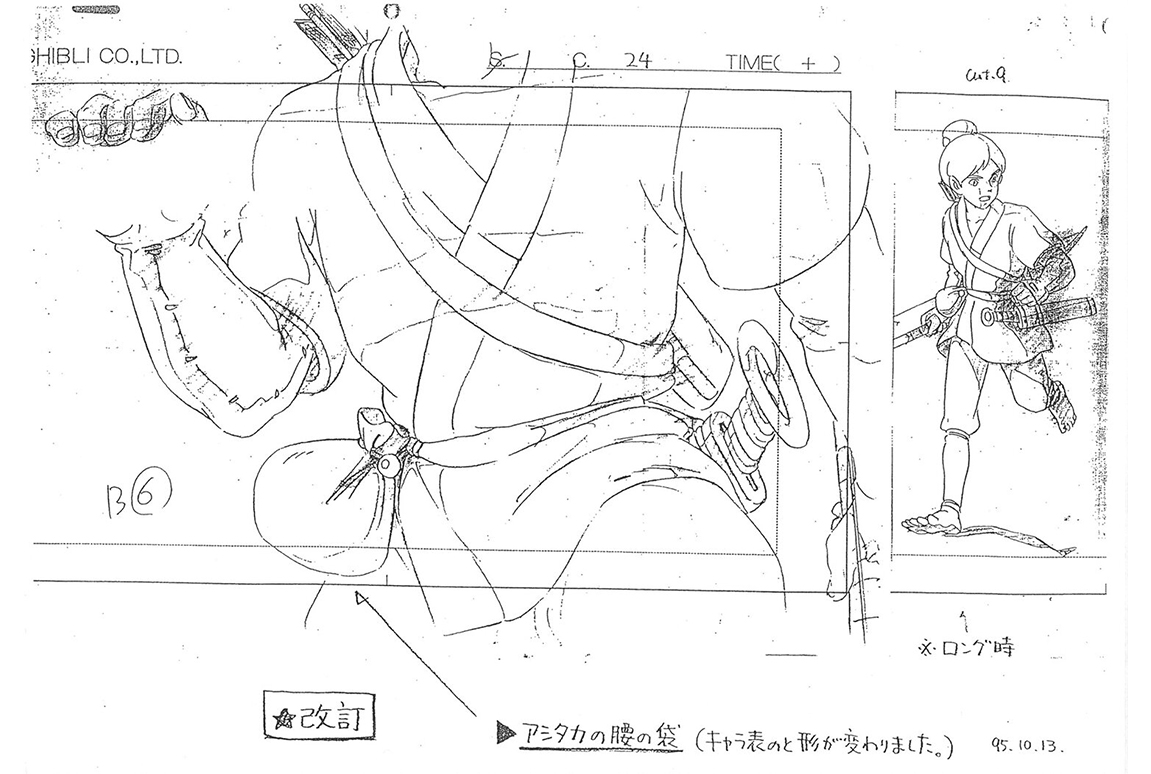 GHIBLI CO.,LTD.
S. C. 24 TIME( + )
cut.9
B⑥
※ロング時
☆改訂
▶アシタカの腰の袋 (キャラ表のと形が変わりました。) 95.10.13.